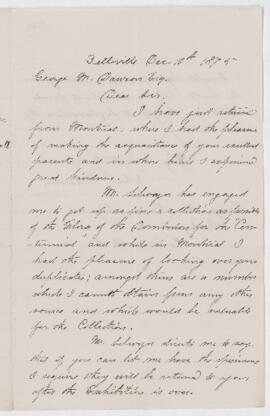 Belleville Dec. 10th 1875
George M. Dawson Esq.
Dear Sir.
I have just return
from Montreal, where I had the pleasure
of making the acquaintance of your excellent
parents and in whom I experienced
great kindness.
Mr. Selwyn has engaged
me to get up as fine a collection as possible
of the Flora of the Dominion for the Cen-
tennial and while in Montreal I
had the pleasure of looking over your
duplicates; amongst them are a number
which I cannot obtain from any other
source and which would be valuable
for the Collection.
Mr. Selwyn directs me to say
that if you can let me have the specimens
I require they will be returned to you
after the Exhibition is over.